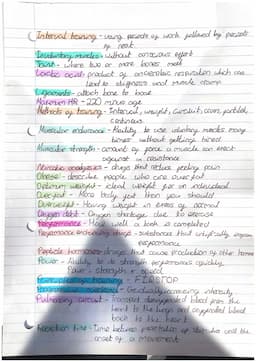 Interval training - using periods of work followed by periods
of rest
Involuntary muscles - without conscious effort
Joint - where two or more bones meet
Lactic acid - product of anaerobic respiration which can
lead to tiredness and muscle cramp
Ligaments - attach bone to bone
Maximum HR - 220 minus age
Methods of training - Interval, weight, circuit, cont, fartlek,
continuous
Muscular endurance - Ability to use voluntary muscles many
times without getting tired
Muscular strength - amount of force a muscle can exert
against a resistance
Narcotic analgesics - drugs that reduce feeling pain
Obese - describe people who are overfat
Optimum weight - ideal weight for an individual
Overfat - More body fat than you should
Overweight - Having weight in excess of normal
Oxygen debt - Oxygen shortage due to exercise
Performance - How well a task is completed
Performance enhancing drugs - substances that artificially improve
performance
Peptide hormones - drugs that cause production of other hormones
Power - Ability to do strength performances quickly
Power = strength x speed
Principles of training - FIDRSTOP
Progressive overload - Gradually increasing intensity
Pulmonary circuit - Transport deoxygenated blood from the
heart to the lungs and oxygenated blood
back to the heart
Reaction time - Time between presentation of stimulus until the
onset of a movement